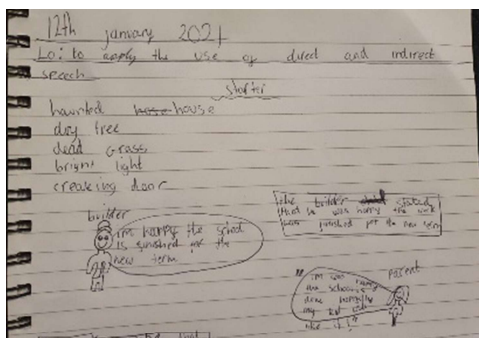 12th january 2021
Lo: to apply the use of direct and indirect
speech
starter
haunted house
dry tree
dead grass
bright light
creaking door
builder
im happy the school
is finished for the
new term
the builder stated
that he was happy the work
was finished for the new term
parent
im happy
the school
done
my kid
like it!"